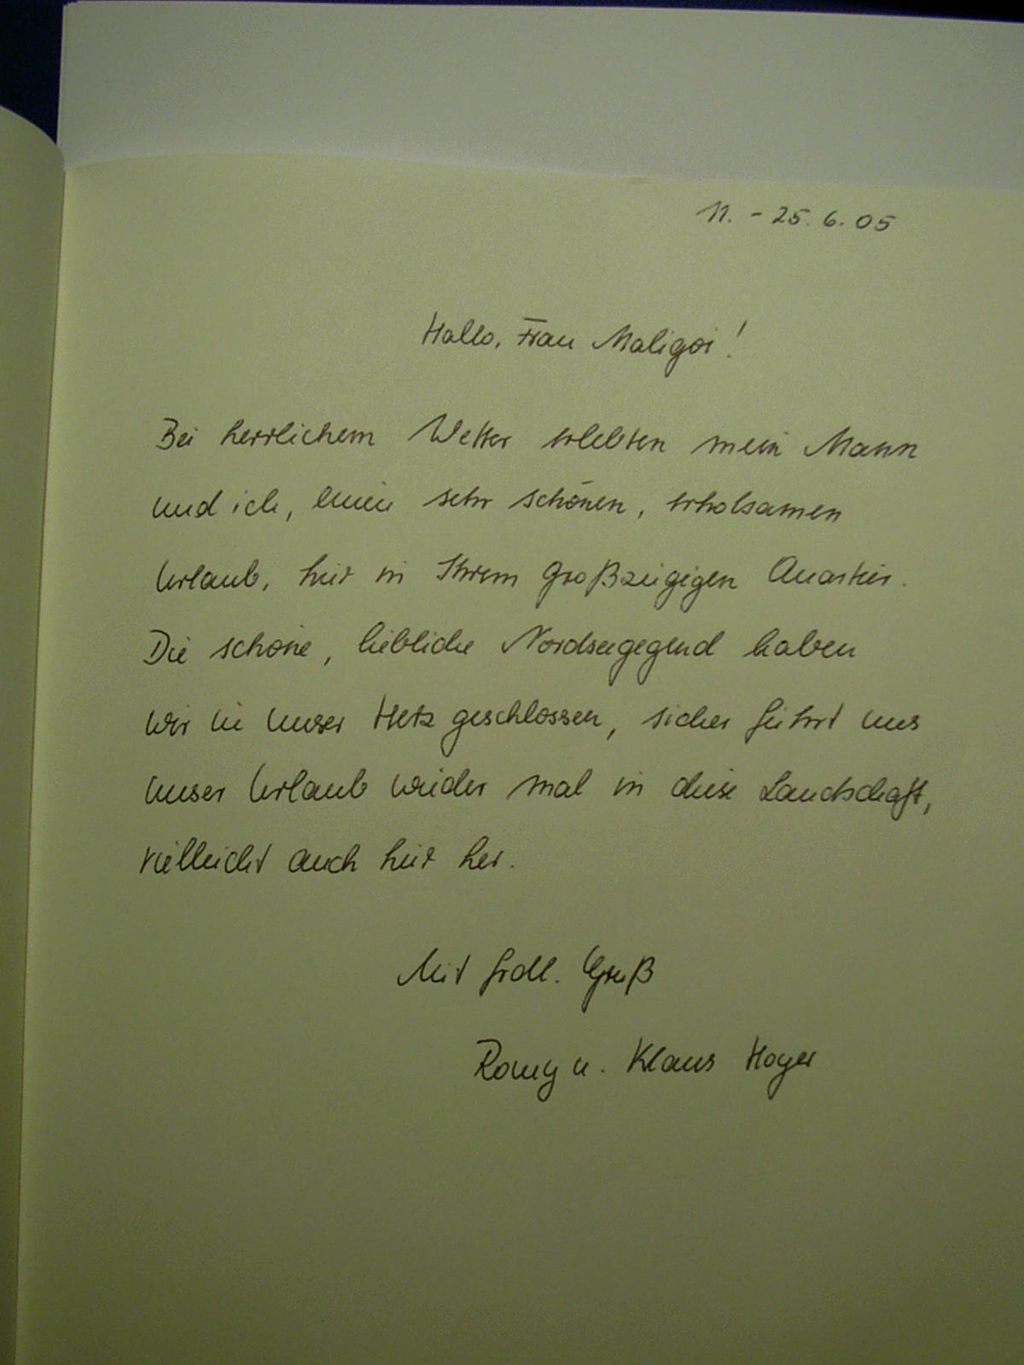 11. - 25. 6. 05
Hallo, Frau Maligoi!
Bei herrlichem Wetter erlebten mein Mann
und ich, einen sehr schönen, erholsamen
Urlaub, hier in Ihrem großzügigen Quartier.
Die schöne, liebliche Nordseegegend haben
wir in unser Herz geschlossen, sicher führt uns
unser Urlaub wieder mal in diese Landschaft,
vielleicht auch hier her.
Mit frdl. Gruß
Romy u. Klaus Hoyer